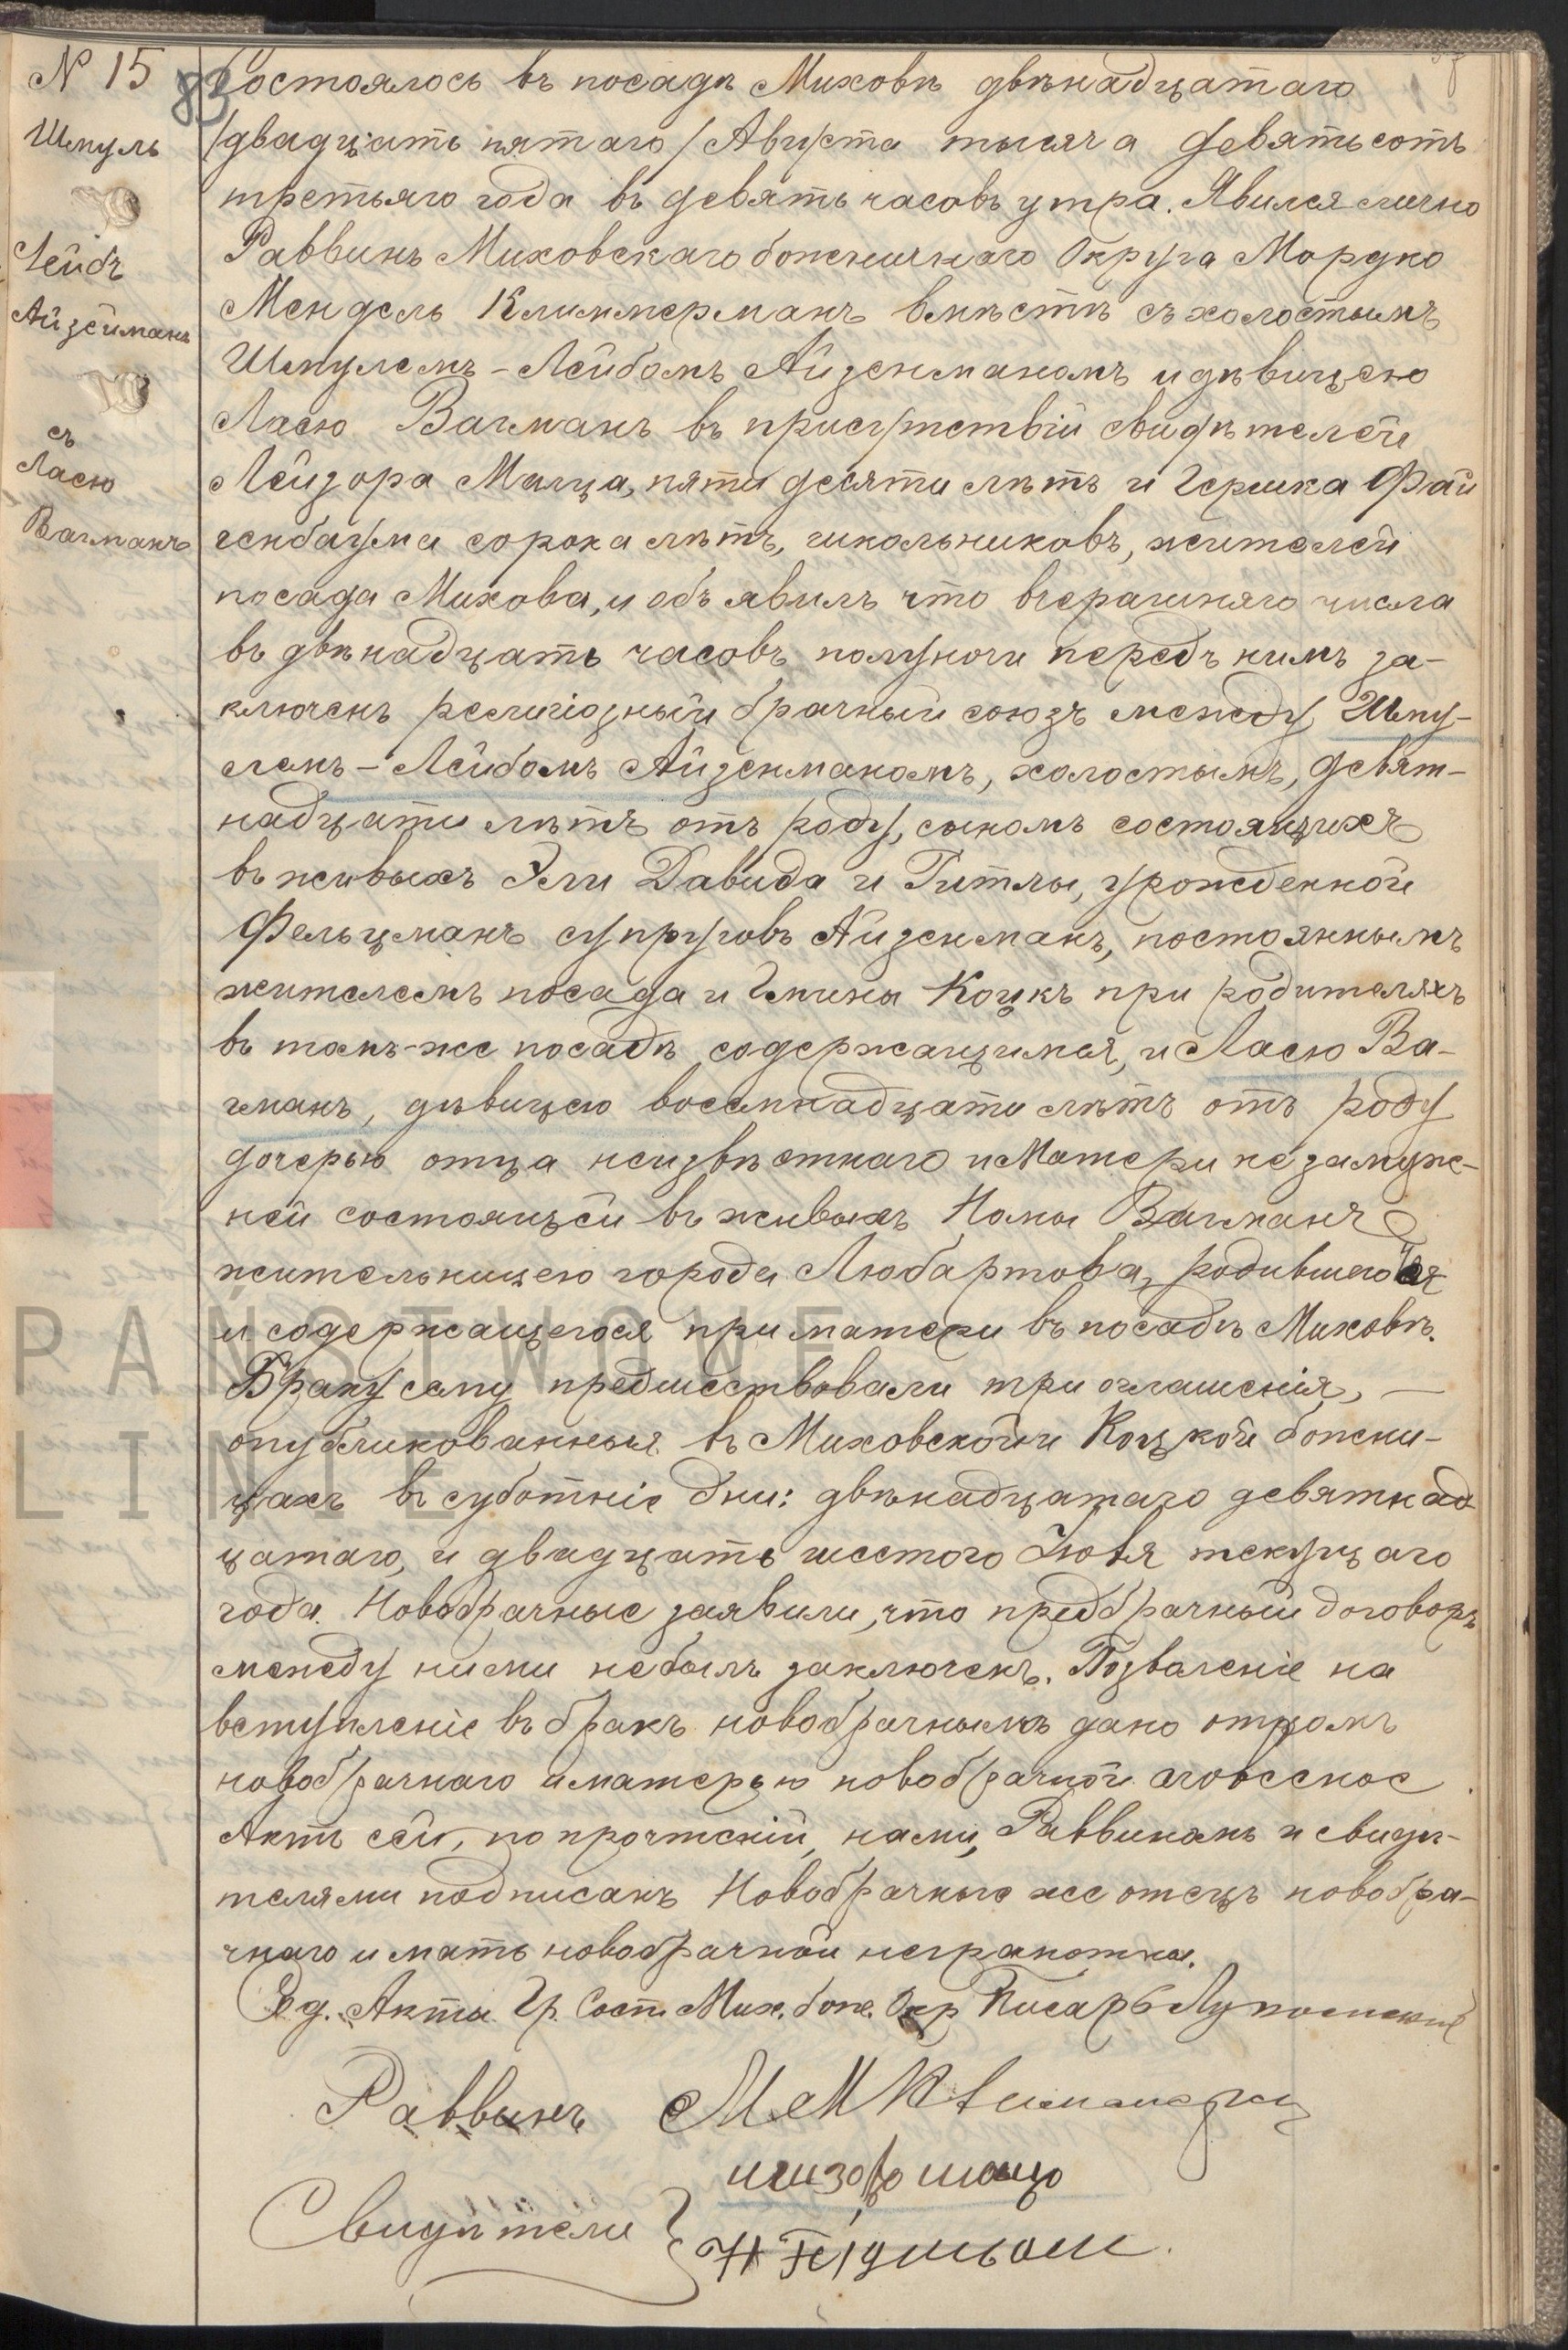 № 15
83
Шмуль
Лейбъ
Айзенманъ
съ
Ласею
Вагманъ
Состоялось въ посадѣ Миховѣ двѣнадцатаго
/двадцать пятаго/ Августа тысяча девятьсотъ
третьяго года въ девять часовъ утра. Явился лично
Раввинъ Миховскаго божничнаго Округа Мордко
Мендель Климмерманъ вмѣстѣ съ холостымъ
Шмулемъ-Лейбомъ Айзенманомъ и дѣвицею
Ласею Вагманъ въ присутствіи свидѣтелей
Лейзора Малца, пяти десяти лѣтъ и Гершка Фай
генбаума сорока лѣтъ, школьниковъ, жителей
посада Михова, и объявилъ что вчерашняго числа
въ двѣнадцать часовъ полуночи передъ нимъ за-
ключенъ религіозный брачный союзъ между Шму-
лемъ-Лейбомъ Айзенманомъ, холостымъ, девят-
надцати лѣтъ отъ роду, сыномъ состоящихъ
въ живыхъ Эли Давида и Гитлы, урожденной
Фельцманъ супруговъ Айзенманъ, постояннымъ
жителемъ посада и Гмины Коцкъ при родителяхъ
въ томъ-же посадѣ содержащимся, и Ласею Ва-
гманъ, дѣвицею восемнадцати лѣтъ отъ роду
дочерью отца неизвѣстнаго и Матери незамуж-
ней состоящей въ живыхъ Номы Вагманъ
жительницею города Любартова, родившегося
и содержащегося при матери въ посадѣ Миховѣ.
Браку сему предшествовали три оглашенія, —
опубликованныя въ Миховской и Коцкой божни-
цахъ въ суботніе дни: двѣнадцатаго девятнад
цатаго, и двадцать шестого Іюля текущаго
года. Новобрачные заявили, что предбрачный договоръ
между ними небылъ заключенъ. Позволеніе на
вступленіе въ бракъ новобрачнымъ дано отцомъ
новобрачнаго и матерью новобрачной словесное
Актъ сей, по прочтеніи, нами, Раввинамъ и свидѣ-
телями подписанъ Новобрачные же отецъ новобра-
чнаго и мать новобрачной неграмотны.
Вд. Акты Гр. Сост. Мих. бож. Окр Писарь
Раввинъ М. М.
Свидѣтели
PAŃSTWOWE
LINIE